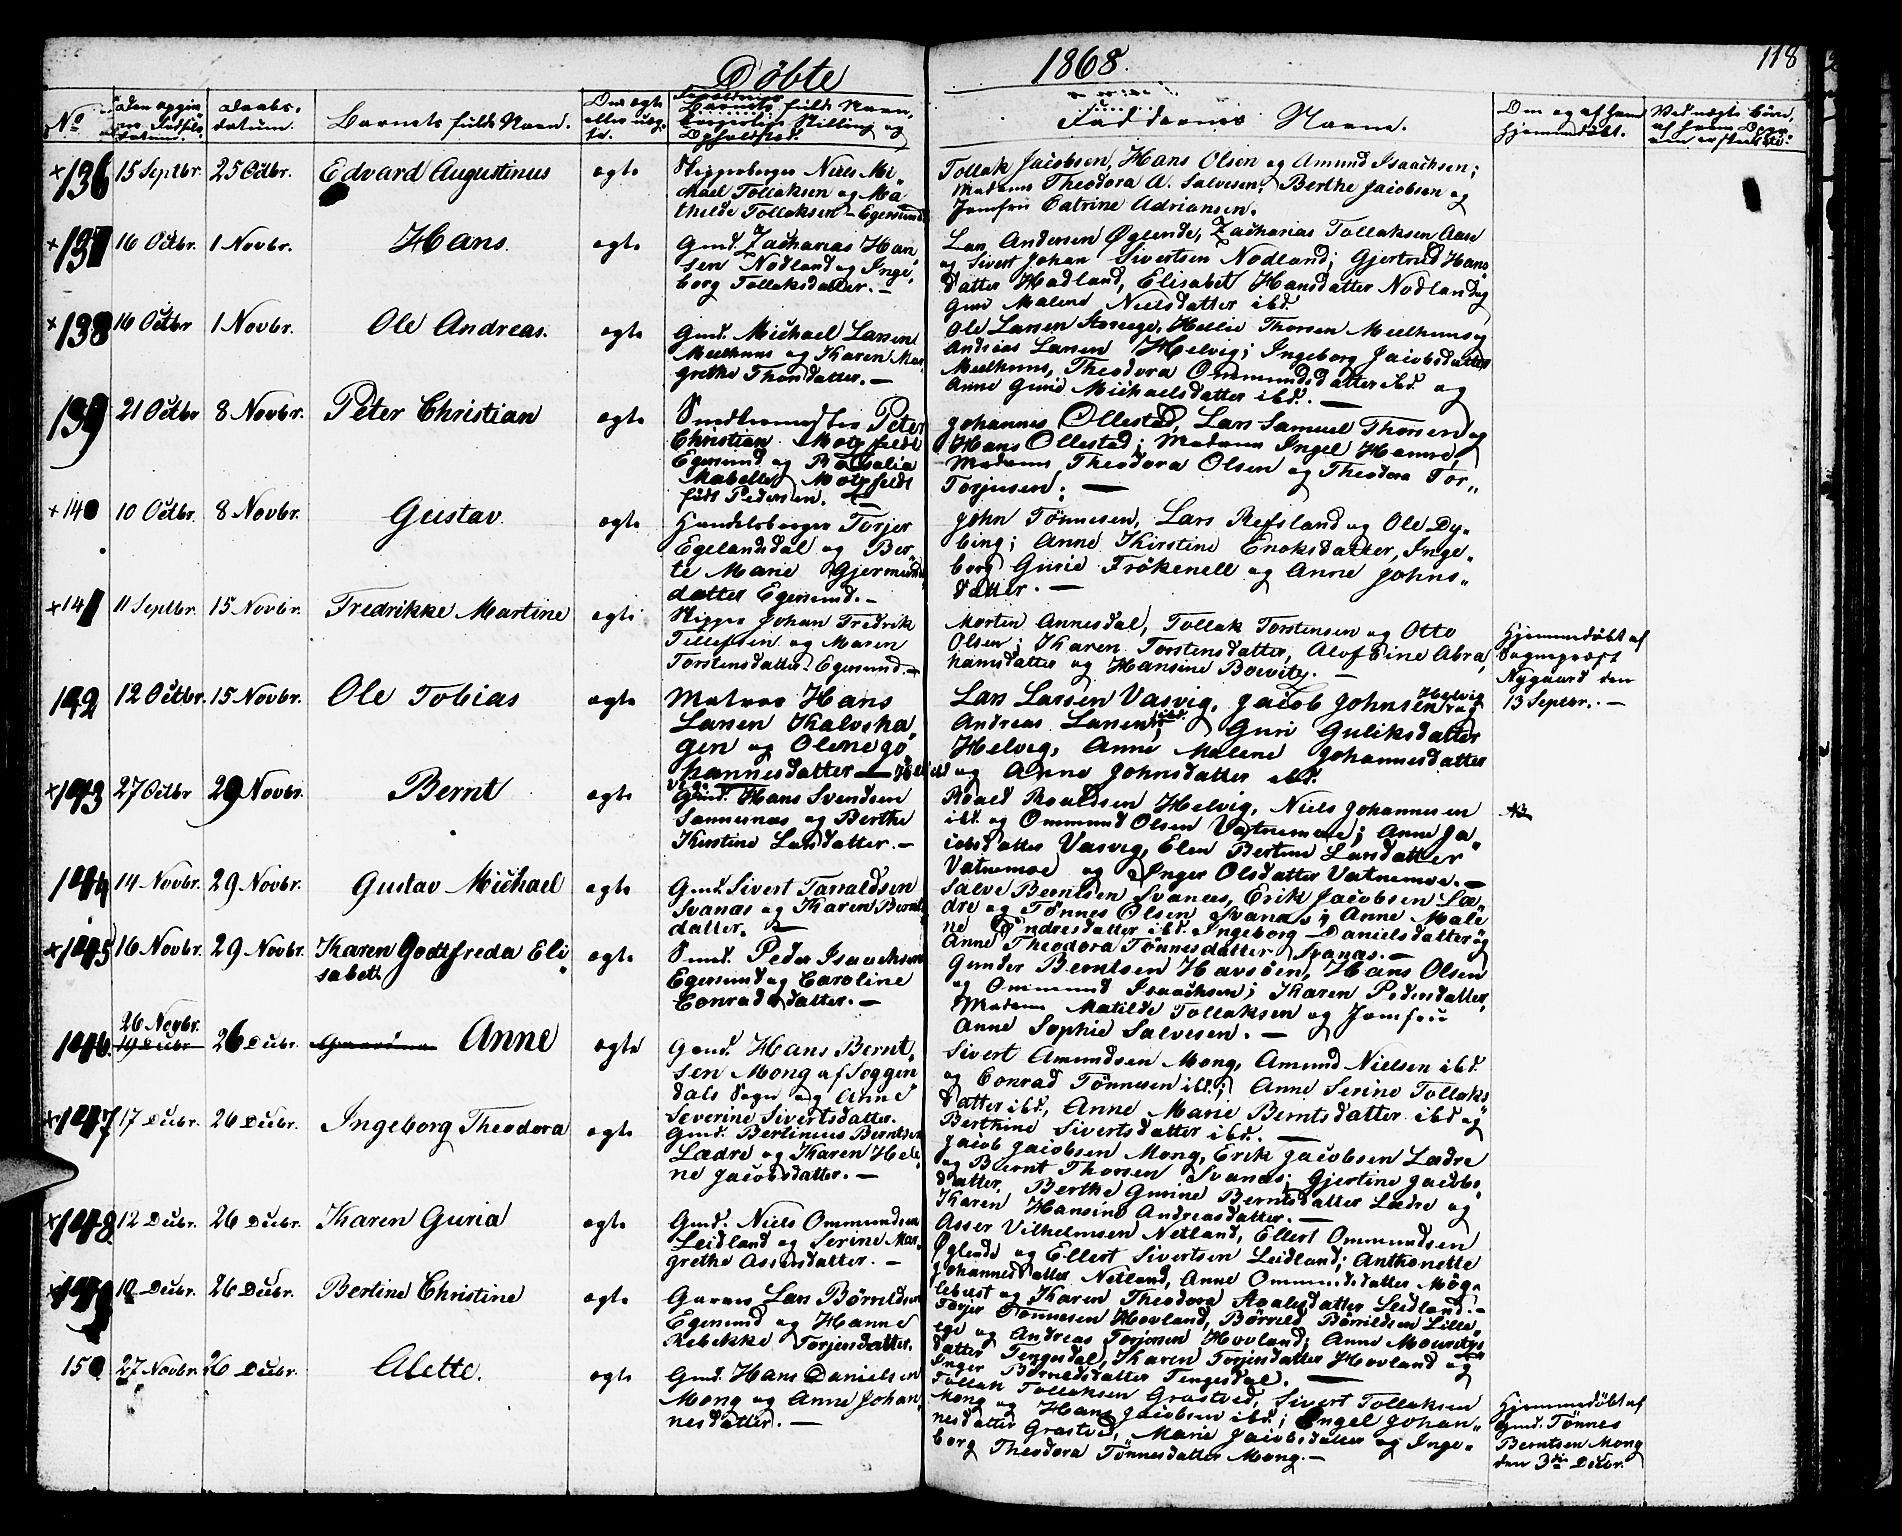 Döbte
1868.
118
No
Barnets fulde Navn.
Faddernes Navne.
136 15 Septbr. 25 Octbr. Edvard Augustinus ægte
Skipperborger Niels Mi-
chael Tollaksen og Ma-
thilde Tollaksen - Egersund
Tollak Jacobsen, Hans Olsen og Amund Isaachsen;
Madame Theodora A. Salvesen, Berthe Jacobsen og
Jomfru Catrine Adriansen.
137 16 Octbr. 1 Novbr. Hans. ægte
Gmd. Zacharias Han-
sen Nodland og Inge-
borg Tollaksdatter. -
Lars Andersen Øglende, Zacharias Tollaksen Aase
og Sivert Johan Sivertsen Nodland; Gjertrud Hans-
datter Hadland, Elisabet Hansdatter Nodland og
Guri Malene Nielsdatter ibd.
138 16 Octbr 1 Novbr. Ole Andreas. ægte
Gmd. Michael Larsen
Meelhuus og Karen Mar-
grethe Thorsdatter. -
Ole Larsen Hellie Thorsen Meelhuus og
Andreas Larsen Helvig; Ingeborg Jacobsdatter
Meelhuus, Theodora Ommundsdatter ibd. og
Anne Gurie Michaelsdatter ibd. -
139 21 Octbr 8 Novbr. Peter Christian ægte
Peter
Christian Motzfeldt
Egersund og Rosalia
Motzfeldt
født Pedersen. -
Johannes Øllestad, Lars Samuel Thorsen og
Hans Øllestad; Madame Ingel Hamre,
Madame Theodora Olsen og Theodora Tor-
Torjusen. -
140 10 Octbr. 8 Novbr. Gustav. ægte
Handelsborger Torjer
Egelandsdal og Ber-
te Marie Gjermunds-
datter Egersund. -
John Tönnesen, Lars Refsland og Ole Dy-
bing; Anne Kirstine Enoksdatter, Inge-
borg Gurie Frökenell og Anne Johns-
datter. -
141 11 Septbr. 15 Novbr. Fredrikke Martine ægte
Skipper Johan Fredrik
Tillefsen og Maren
Torstensdatter Egersund. -
Morten Annesdal, Tollak Torstensen og Otto
Olsen; Karen Torstensdatter, Alvfsine Abra-
hamsdatter og Hansine -
Hjemmedøbt af
Sognepræst
Nygaard den
13 Septbr. -
142 12 Octbr. 15 Novbr. Ole Tobias ægte
Matros Hans
Larsen Kalvsha-
gen og Olene Jo-
hannesdatter -
Lars Larsen Vasvig, Jacob Johnsen Helvig og
Andreas Larsen ibd; Guri Guliksdatter
Helvig, Anne Malene Johannesdatter
og Anne Johnsdatter ibd.
143 27 Octbr 29 Novbr. Bernt ægte
Gmd. Hans Svendsen
Sannesnæs og Berthe
Kirstine Larsdatter. -
Roald Roaldsen Helvig, Niels Johannesen
ibd. og Ommund Olsen Vatnemoe; Anne Ja-
cobsdatter Vasvig, Elen Bertine Larsdatter
Vatnemoe og Inger Olsdatter Vatnemoe. -
144 14 Novbr. 29 Novbr. Gustav Michael ægte
Gmd. Sivert Tarraldsen
Svanæs og Karen Bernts-
datter. -
Salve Berntsen Svanæs, Erik Jacobsen Læ-
dre og Tönnes Olsen Svanæs; Anne Male-
ne Endresdatter ibd. Ingeborg Danielsdatter og
Anne Theodora Tönnesdatter Svanæs. -
145 16 Novbr. 29 Novbr. Karen Godtfreda Eli-
sabeth ægte
Smed. Peder Isaachsen
Egersund og Caroline
Conradsdatter. -
Gunder Berntsen Havsöen, Hans Olsen
og Ommund Isaachsen; Karen Pedersdatter,
Madame Matilde Tollaksen og Jomfru
Anne Sophie Salvesen. -
146. 26 Novbr. 26 Decbr. Anne ægte
Gmd. Hans Bernt-
sen Mong af Soggen-
dals Sogn og Anne
Severine Sivertsdatter.
Sivert Amundsen Mong, Amund Nielsen ibd.
og Conrad Tönnesen ibd.; Anne Serine Tollaks-
datter ibd, Anne Marie Berntsdatter ibd og
Berthine Sivertsdatter ibd. -
147 17 Decbr. 26 Decbr. Ingeborg Theodora ægte
Gmd. Bertinius Berntsen
Lædre og Karen Hele-
ne Jacobsdatter. -
Jacob Jacobsen Mong, Erik Jacobsen Lædre
og Bernt Thorsen Svanæs; Gjertine Jacobs-
datter, Berthe Gurine Berntsdatter Lædre og
Karen Hansine Andreasdatter. -
148 12 Decbr. 26 Decbr. Karen Guria ægte
Gmd. Niels Ommundsen
Leidland og Serine Mar-
grethe Assersdatter. -
Asser Vilhelmsen Netland, Ellert Ommundsen
Øglende og Ellert Sivertsen Leidland; Anthonette
Johannesdatter Netland, Anne Ommundsdatter Møg-
lebust og Karen Theodora Leidland. -
149 10 Decbr. 26 Decbr. Bertine Christine ægte
Garver Lars Börrildsen
Egersund og Hanne
Rebekke Torjersdatter.
Torjer Tönnesen Hovland, Börrild Börrildsen Lille-
ege og Andreas Torjersen Hovland; Anne Mouritz-
datter Tengesdal, Karen Torjersdatter Hovland og
Inger Börrildsdatter Tengesdal. -
150 27 Novbr. 26 Decbr. Alette. ægte
Gmd. Hans Danielsen
Mong og Anne Johan-
nesdatter. -
Tollak Tollaksen Grastved, Sivert Tollaksen
Mong og Hans Jacobsen ibd.; Ingel Johan-
nesdatter Grastved, Marie Jacobsdatter og Inge-
borg Theodora Tönnesdatter Mong. -
Hjemmedøbt af
Gmd. Tönnes
Berntsen Mong
den 3die Decbr.